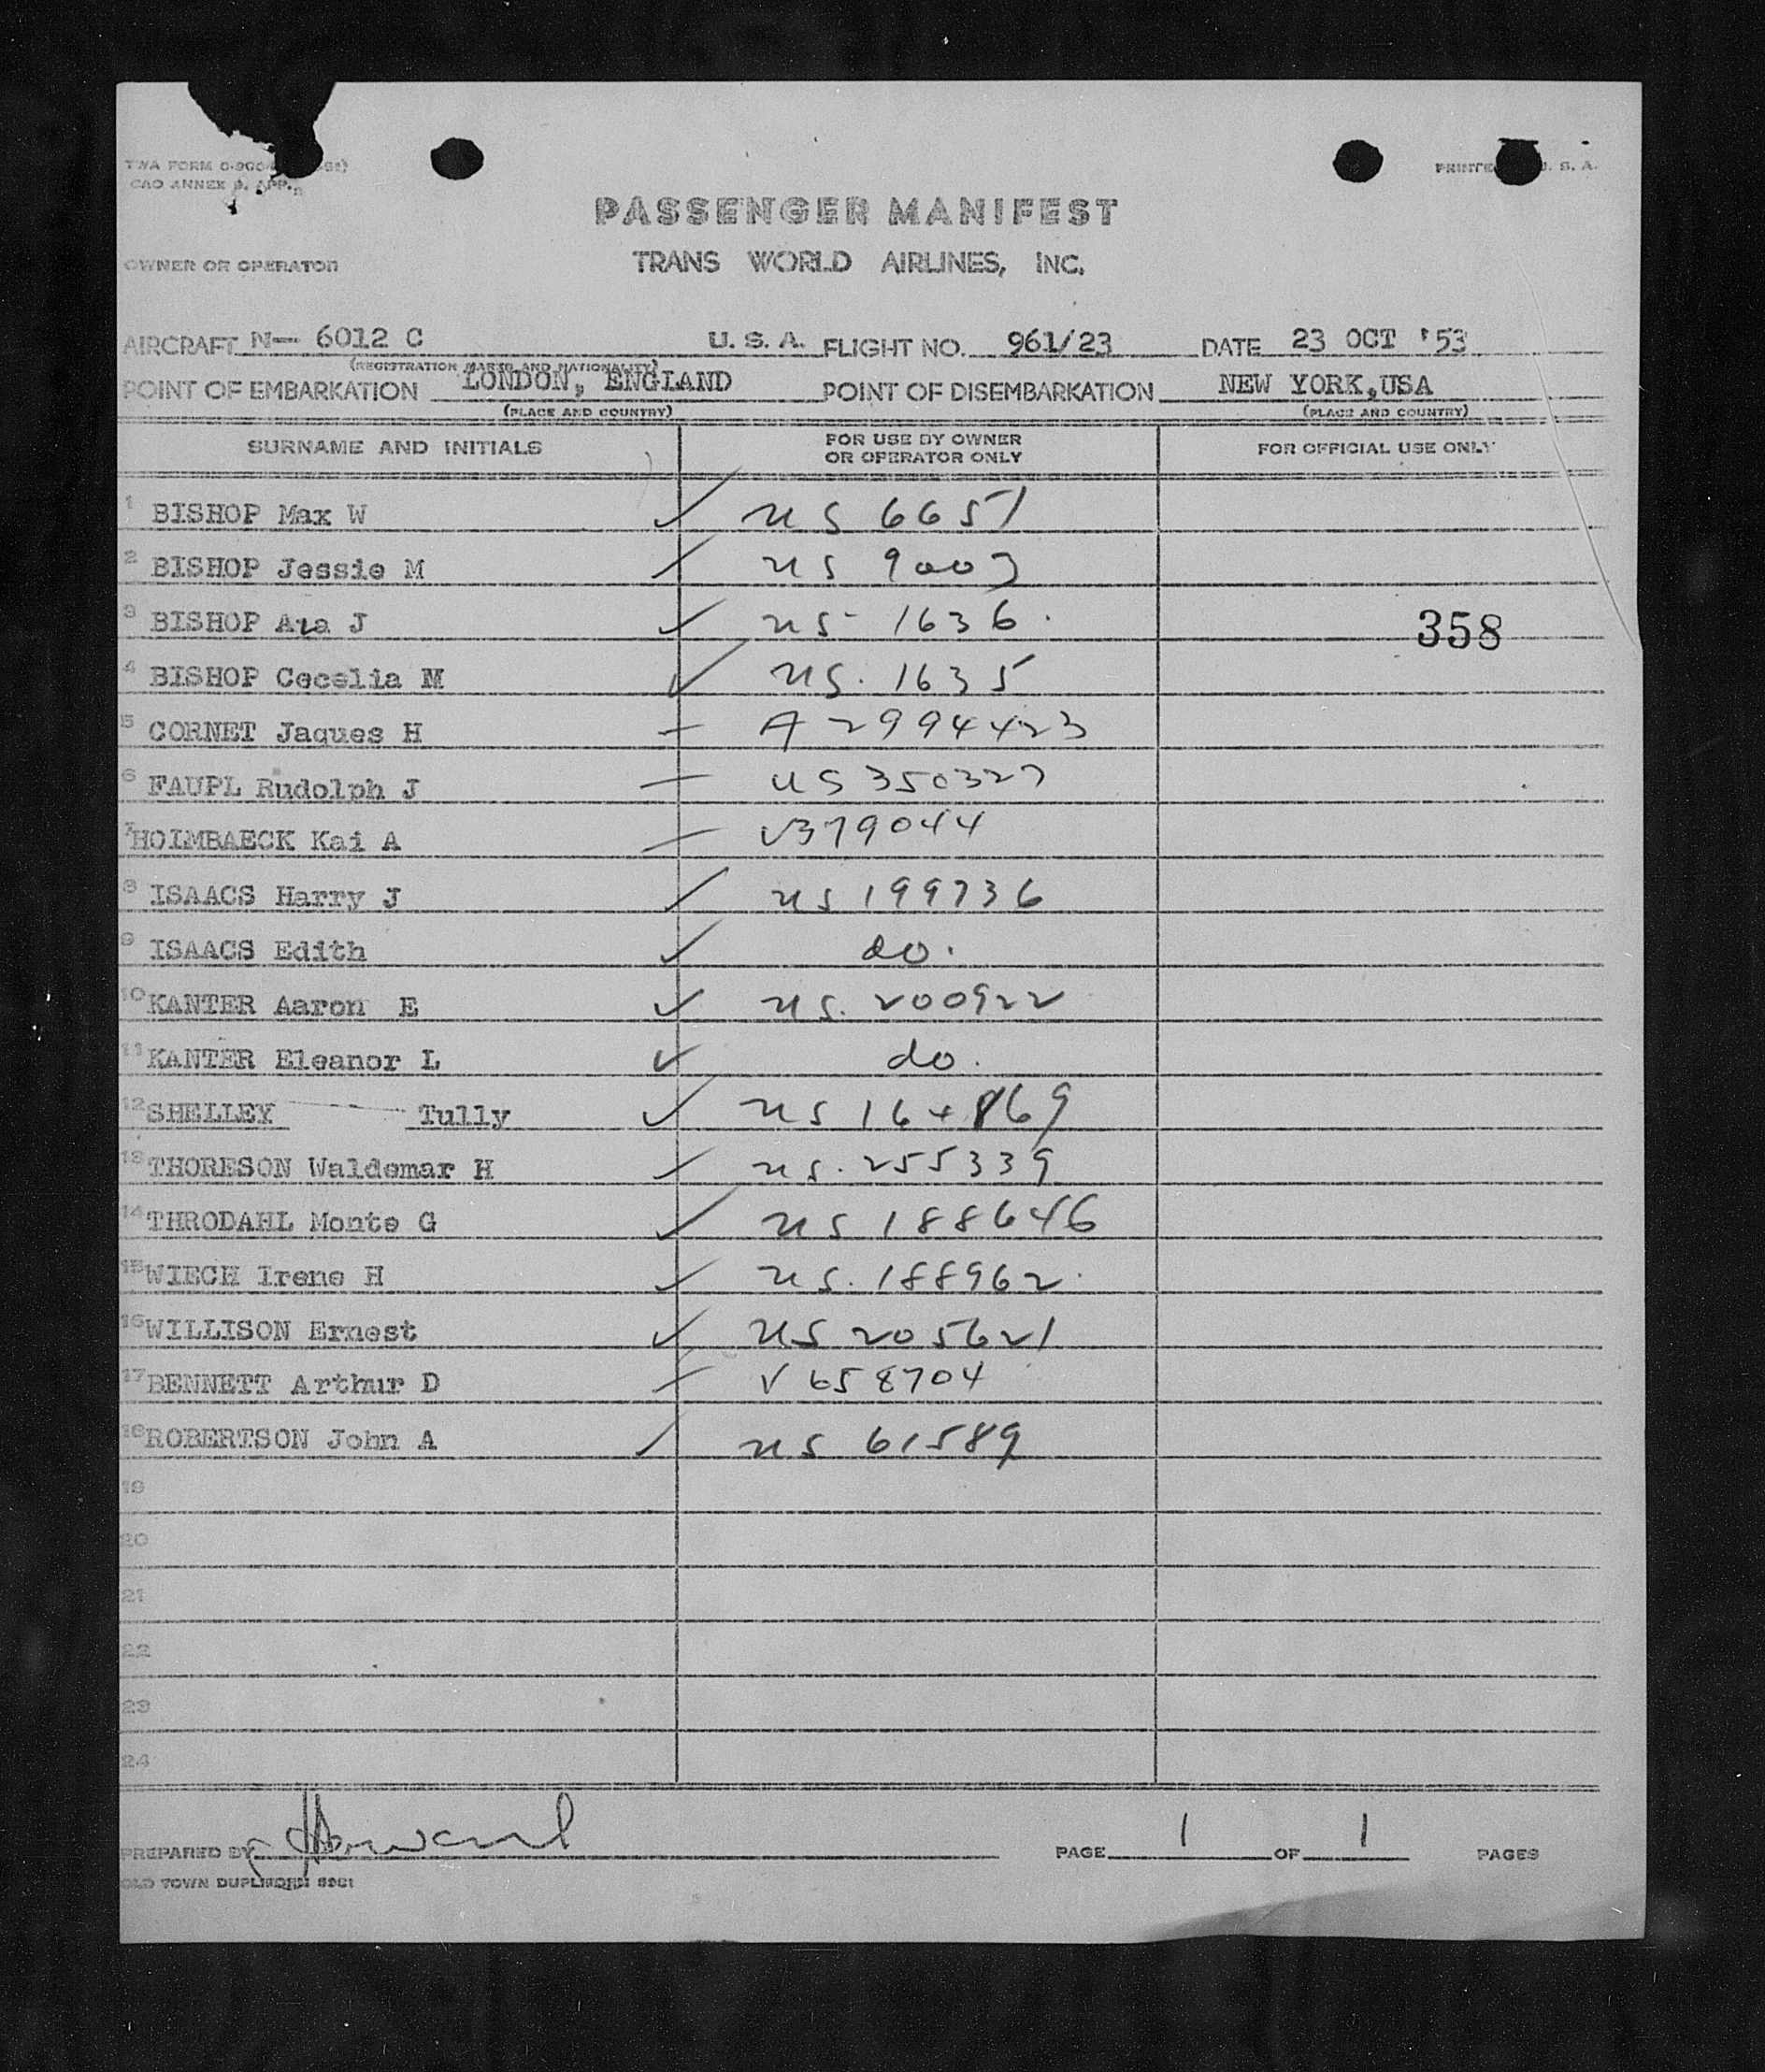 TWA FORM
CAO ANNEX 9, APP.
PRINTED U. S. A.
PASSENGER MANIFEST
OWNER OR OPERATOR
TRANS WORLD AIRLINES, INC.
AIRCRAFT N— 6012 C U. S. A. FLIGHT NO. 961/23 DATE 23 OCT '53
(REGISTRATION MARKS AND NATIONALITY)
POINT OF EMBARKATION LONDON, ENGLAND POINT OF DISEMBARKATION NEW YORK,USA
(PLACE AND COUNTRY) (PLACE AND COUNTRY)
SURNAME AND INITIALS FOR USE BY OWNER OR OPERATOR ONLY FOR OFFICIAL USE ONLY
1 BISHOP Max W ✓ US 6651
2 BISHOP Jessie M ✓ US 9003
3 BISHOP J ✓ US 1636. 358
4 BISHOP Cecelia M ✓ US. 1635
5 CORNET Jaques H – A 2994423
6 FAUPL Rudolph J – US 350327
7 HOLMBAECK Kai A – V379044
8 ISAACS Harry J ✓ US 199736
9 ISAACS Edith ✓ do.
10 KANTER Aaron E ✓ US. 200922
11 KANTER Eleanor L ✓ do.
12 SHELLEY Tully ✓ US
13 THORESON Waldemar H ✓ US. 255339
14 THRODAHL Monte G ✓ US 188646
15 WIECH Irene H ✓ US. 188962.
16 WILLISON Ernest ✓ US 205621
17 BENNETT Arthur D – V 658704
18 ROBERTSON John A ✓ US 61589
19
20
21
22
23
24
PREPARED BY PAGE 1 OF 1 PAGES
OLD TOWN